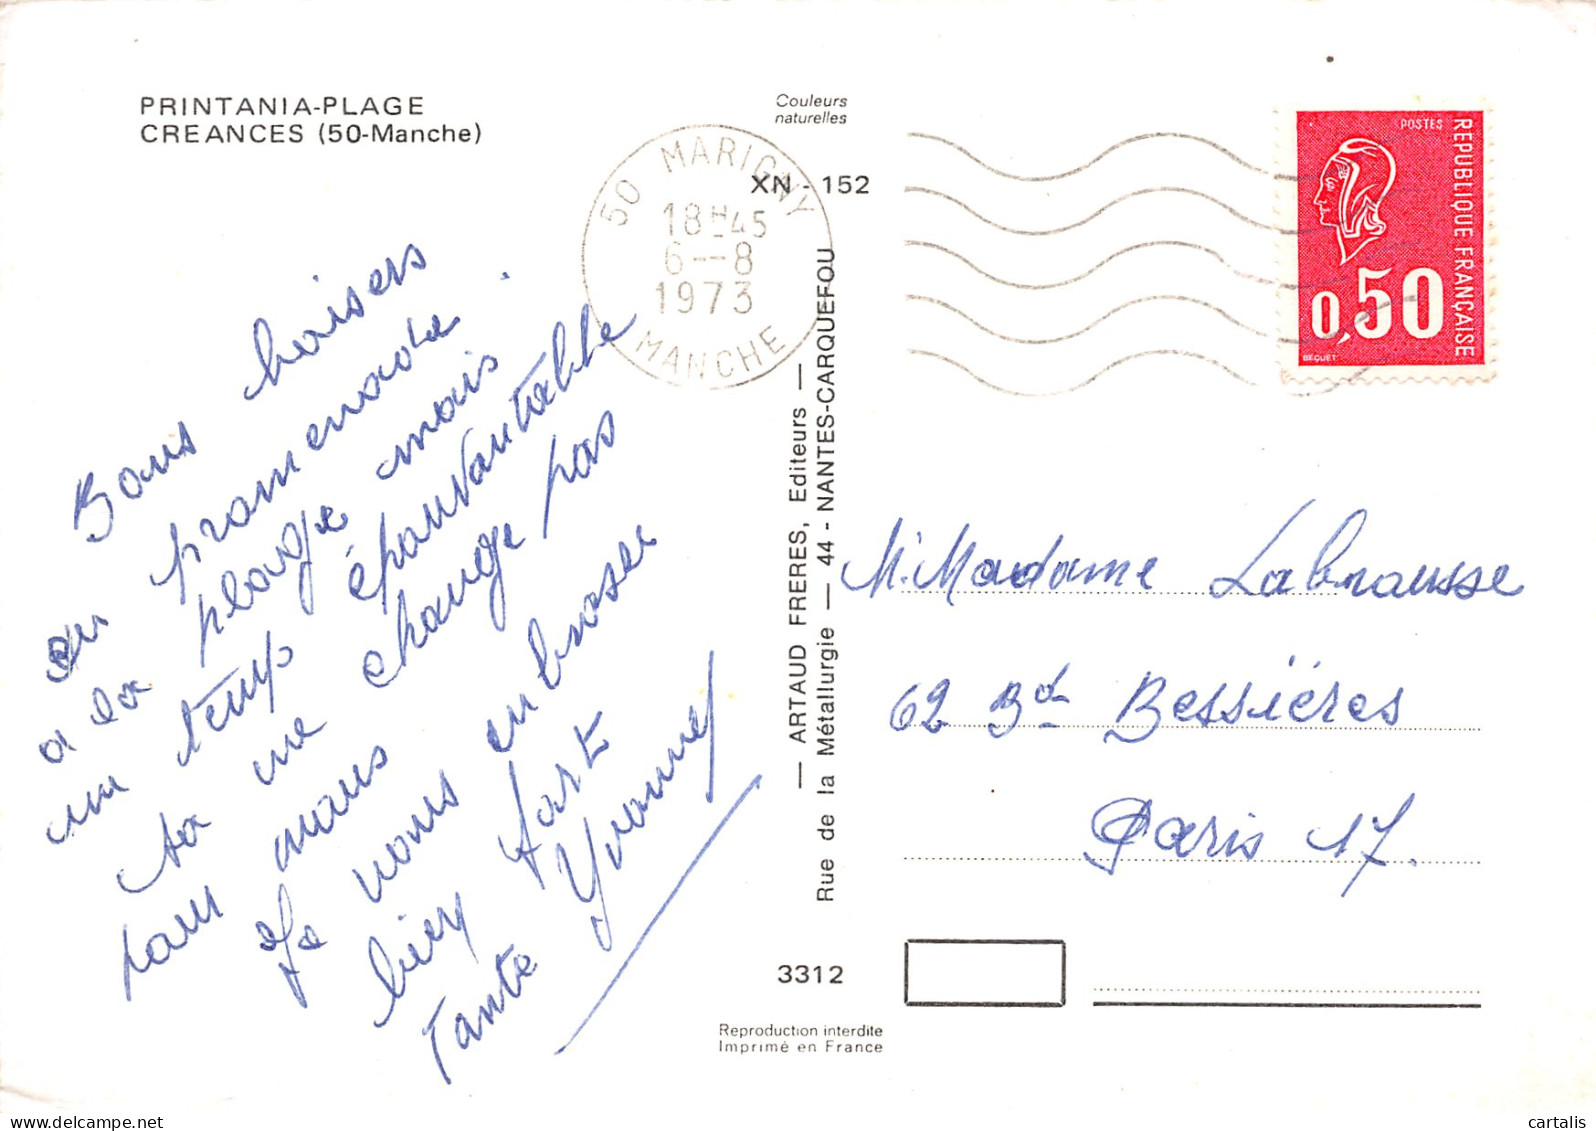 PRINTANIA-PLAGE
CREANCES (50-Manche)
Couleurs
naturelles
XN - 152
50 MARIGNY
18H45
6--8
1973
MANCHE
POSTES
REPUBLIQUE FRANÇAISE
0,50
BEQUET
Bons baisers
en promenade
a la plage mais
un temps épouvantable
sa ne change pas
pour nous
Je vous embrasse
bien fort
Tante Yvonne
— ARTAUD FRERES, Editeurs —
Rue de la Métallurgie — 44 - NANTES-CARQUEFOU
M. Madame Labrousse
62 Bd Bessiéres
Paris 17.
3312
Reproduction interdite
Imprimé en France
cartalis